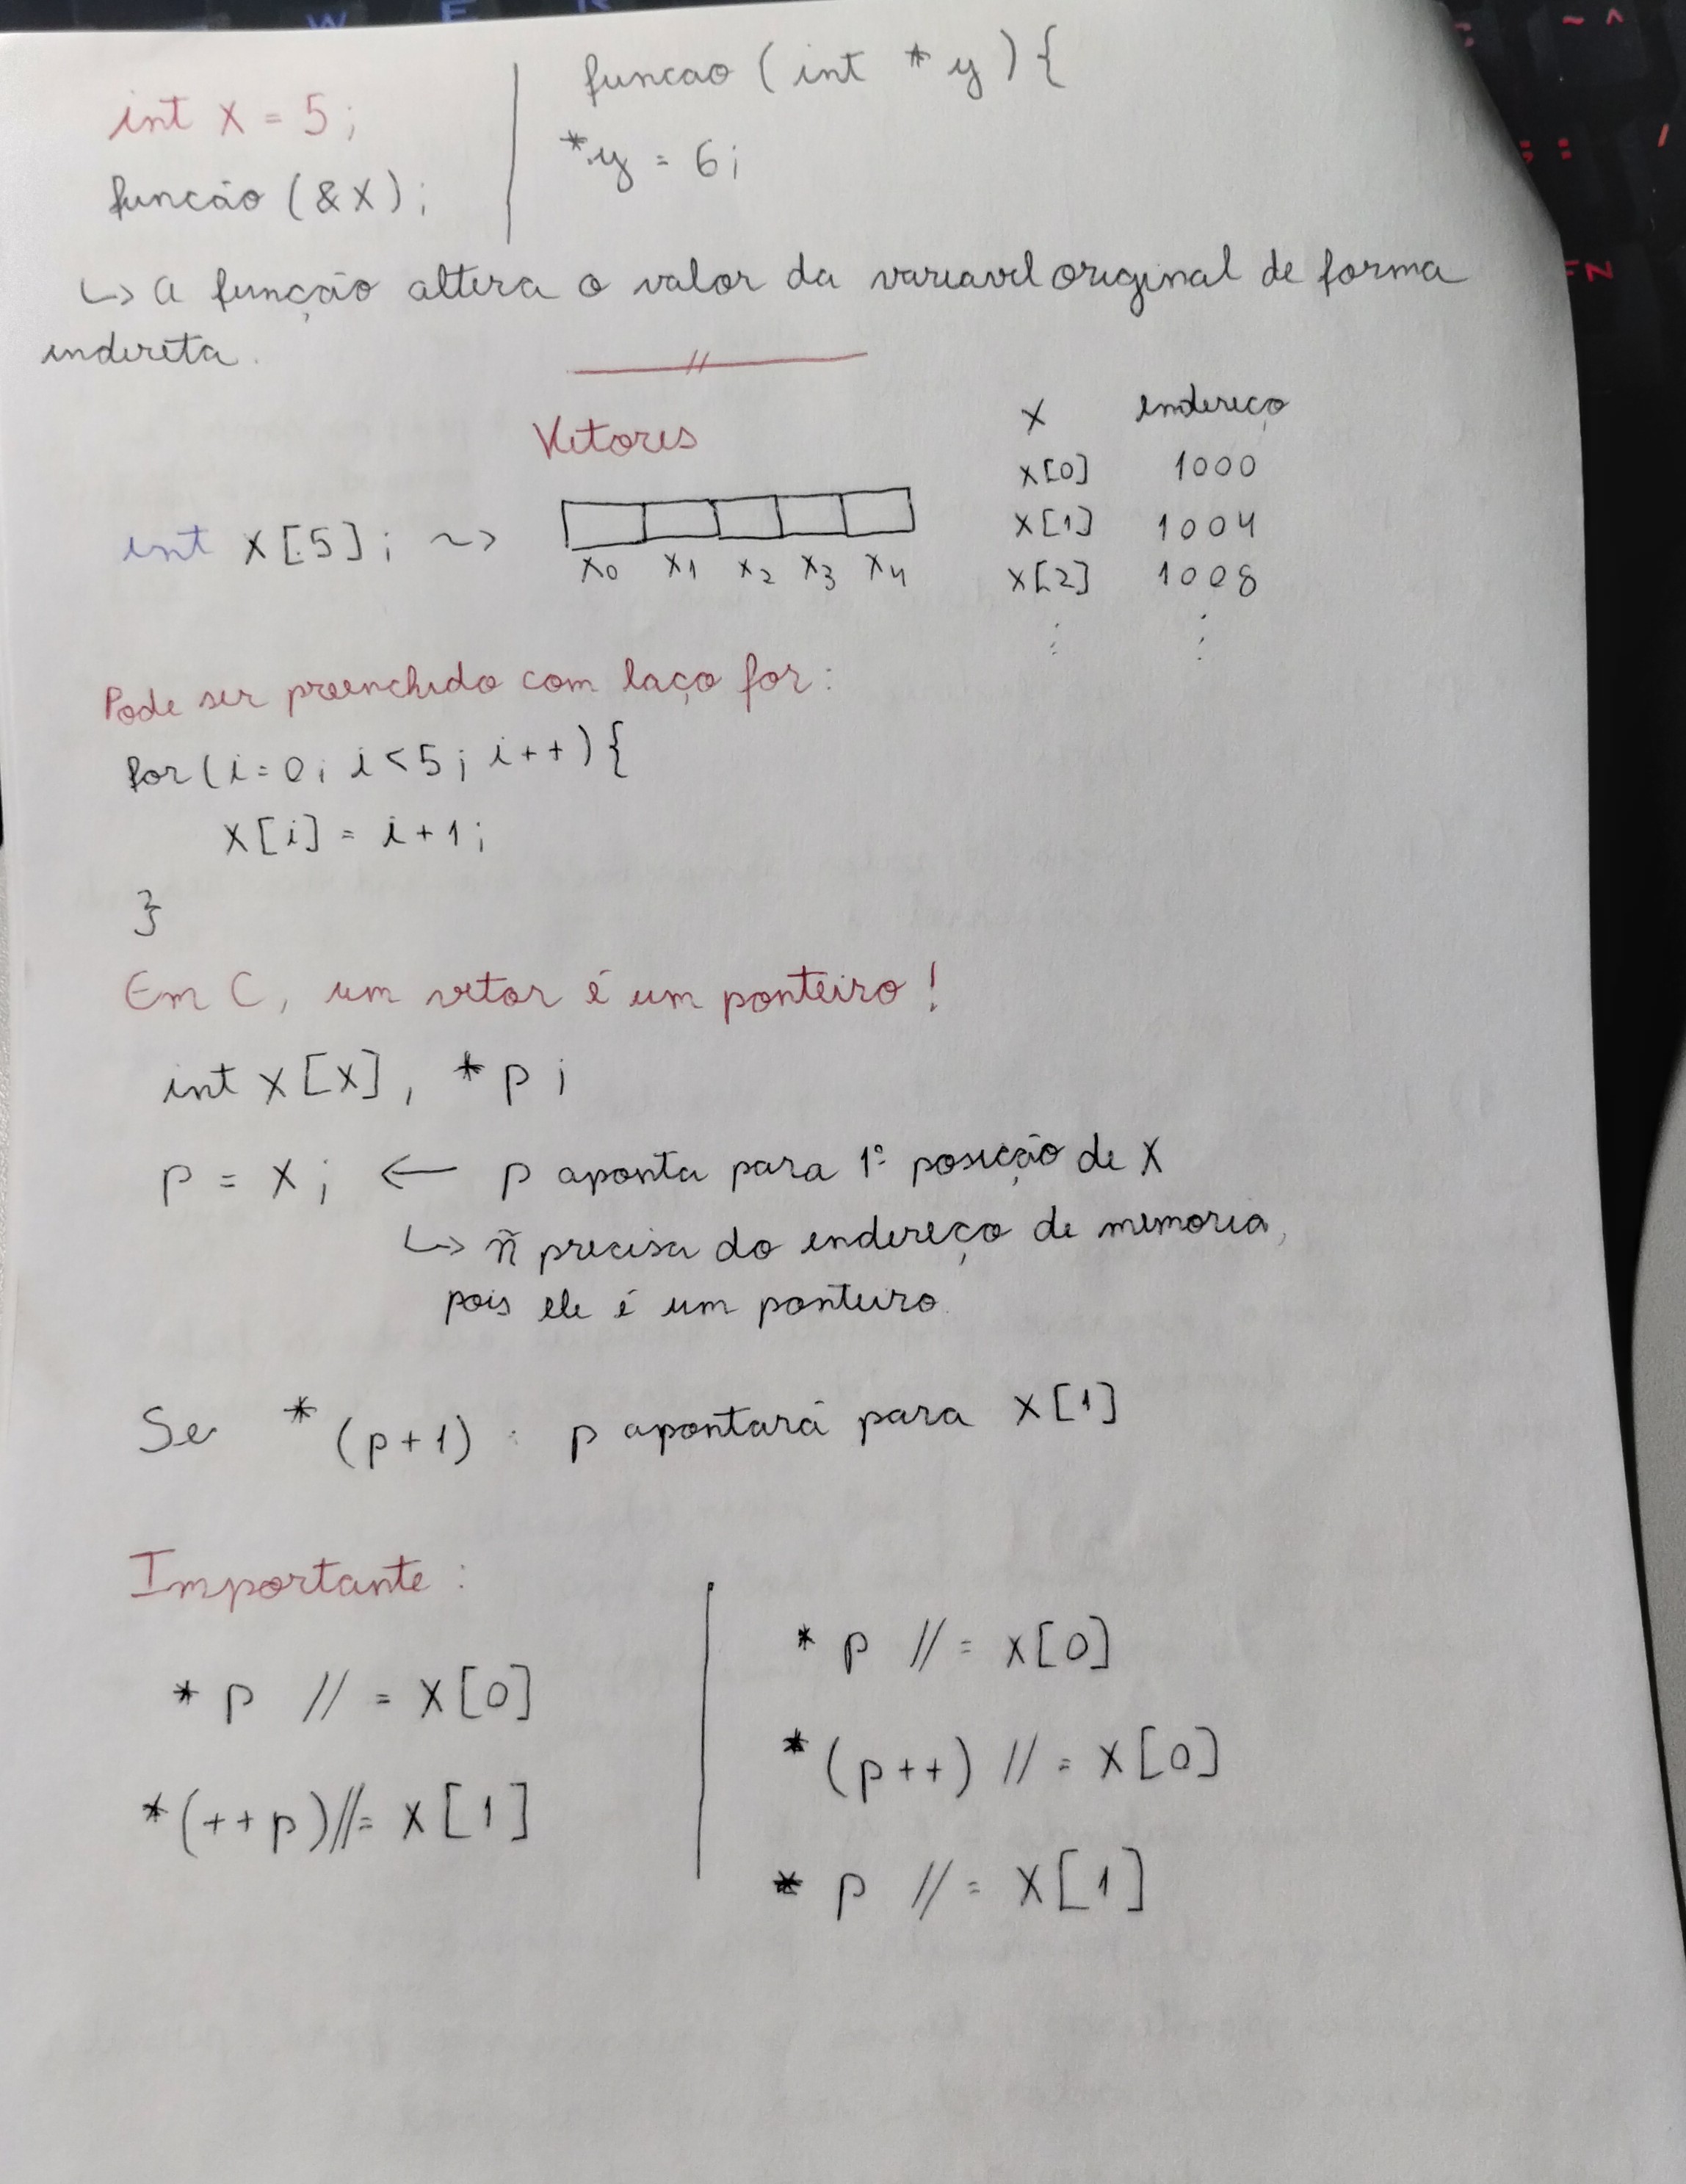 int X = 5;
função (&X);
funcao (int *y){
*y = 6;
↳ a função altera o valor da variavel original de forma
indireta.
Vetores
int X[5]; ~>
X0 X1 X2 X3 X4
X endereço
X[0] 1000
X[1] 1004
X[2] 1008
⋮ ⋮
Pode ser preenchido com laço for:
for(i=0; i<5; i++){
X[i] = i+1;
}
Em C, um vetor é um ponteiro!
int X[X], *p;
p = X; ← p aponta para 1º posição de X
↳ ñ precisa do endereço de memoria,
pois ele é um ponteiro.
Se *(p+1) : p apontará para X[1]
Importante:
*p // = X[0]
*(++p)//= X[1]
*p // = X[0]
*(p++) // = X[0]
*p // = X[1]